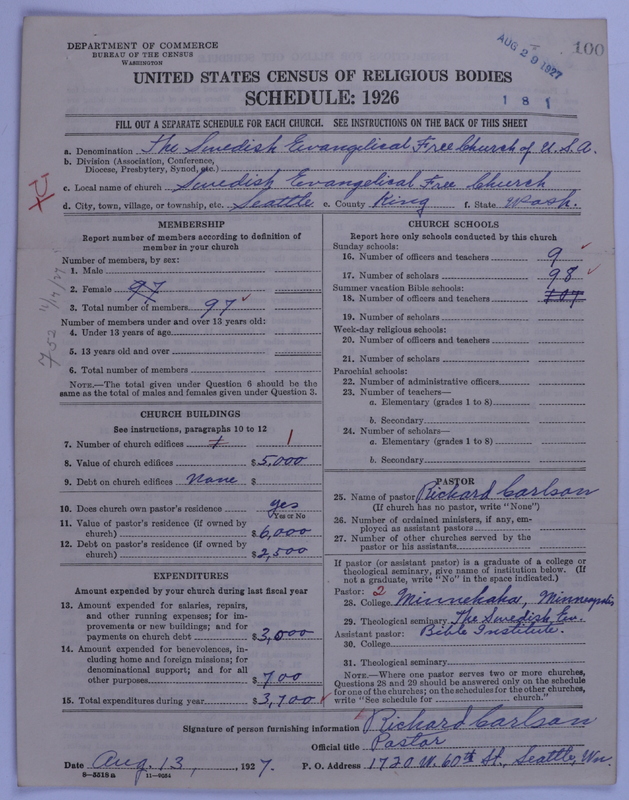 DEPARTMENT OF COMMERCE
BUREAU OF THE CENSUS
WASHINGTON
AUG 29 1927
100
UNITED STATES CENSUS OF RELIGIOUS BODIES
SCHEDULE: 1926
1 8 1
FILL OUT A SEPARATE SCHEDULE FOR EACH CHURCH. SEE INSTRUCTIONS ON THE BACK OF THIS SHEET
a. Denomination The Swedish Evangelical Free Church of U.S.A.
b. Division (Association, Conference,
Diocese, Presbytery, Synod, etc.)
c. Local name of church Swedish Evangelical Free Church
d. City, town, village, or township, etc. Seattle e. County King f. State Wash.
MEMBERSHIP
Report number of members according to definition of
member in your church
Number of members, by sex:
1. Male
2. Female 97
3. Total number of members 97
Number of members under and over 13 years old:
4. Under 13 years of age
5. 13 years old and over
6. Total number of members
NOTE.—The total given under Question 6 should be the
same as the total of males and females given under Question 3.
752 11/17/27
CHURCH BUILDINGS
See instructions, paragraphs 10 to 12
7. Number of church edifices 1 1
8. Value of church edifices $5,000
9. Debt on church edifices None $
10. Does church own pastor's residence yes
Yes or No
11. Value of pastor's residence (if owned by
church) $6,000
12. Debt on pastor's residence (if owned by
church) $2,500
EXPENDITURES
Amount expended by your church during last fiscal year
13. Amount expended for salaries, repairs,
and other running expenses; for im-
provements or new buildings; and for
payments on church debt $3,000
14. Amount expended for benevolences, in-
cluding home and foreign missions; for
denominational support; and for all
other purposes $700
15. Total expenditures during year $3,700
CHURCH SCHOOLS
Report here only schools conducted by this church
Sunday schools:
16. Number of officers and teachers 9
17. Number of scholars 98
Summer vacation Bible schools:
18. Number of officers and teachers 107
19. Number of scholars
Week-day religious schools:
20. Number of officers and teachers
21. Number of scholars
Parochial schools:
22. Number of administrative officers
23. Number of teachers—
a. Elementary (grades 1 to 8)
b. Secondary
24. Number of scholars—
a. Elementary (grades 1 to 8)
b. Secondary
PASTOR
25. Name of pastor Richard Carlson
(If church has no pastor, write "None")
26. Number of ordained ministers, if any, em-
ployed as assistant pastors
27. Number of other churches served by the
pastor or his assistants
If pastor (or assistant pastor) is a graduate of a college or
theological seminary, give name of institution below. (If
not a graduate, write "No" in the space indicated.)
Pastor: 2
28. College Minnehaha, Minneapolis
29. Theological seminary The Swedish Ev.
Assistant pastor: Bible Institute.
30. College
31. Theological seminary
NOTE.—Where one pastor serves two or more churches,
Questions 28 and 29 should be answered only on the schedule
for one of the churches; on the schedules for the other churches,
write "See schedule for church."
Signature of person furnishing information Richard Carlson
Official title Pastor
Date Aug. 13, 1927. P. O. Address 1720 W. 60th St., Seattle, Wn.
8—5518a 11—9034